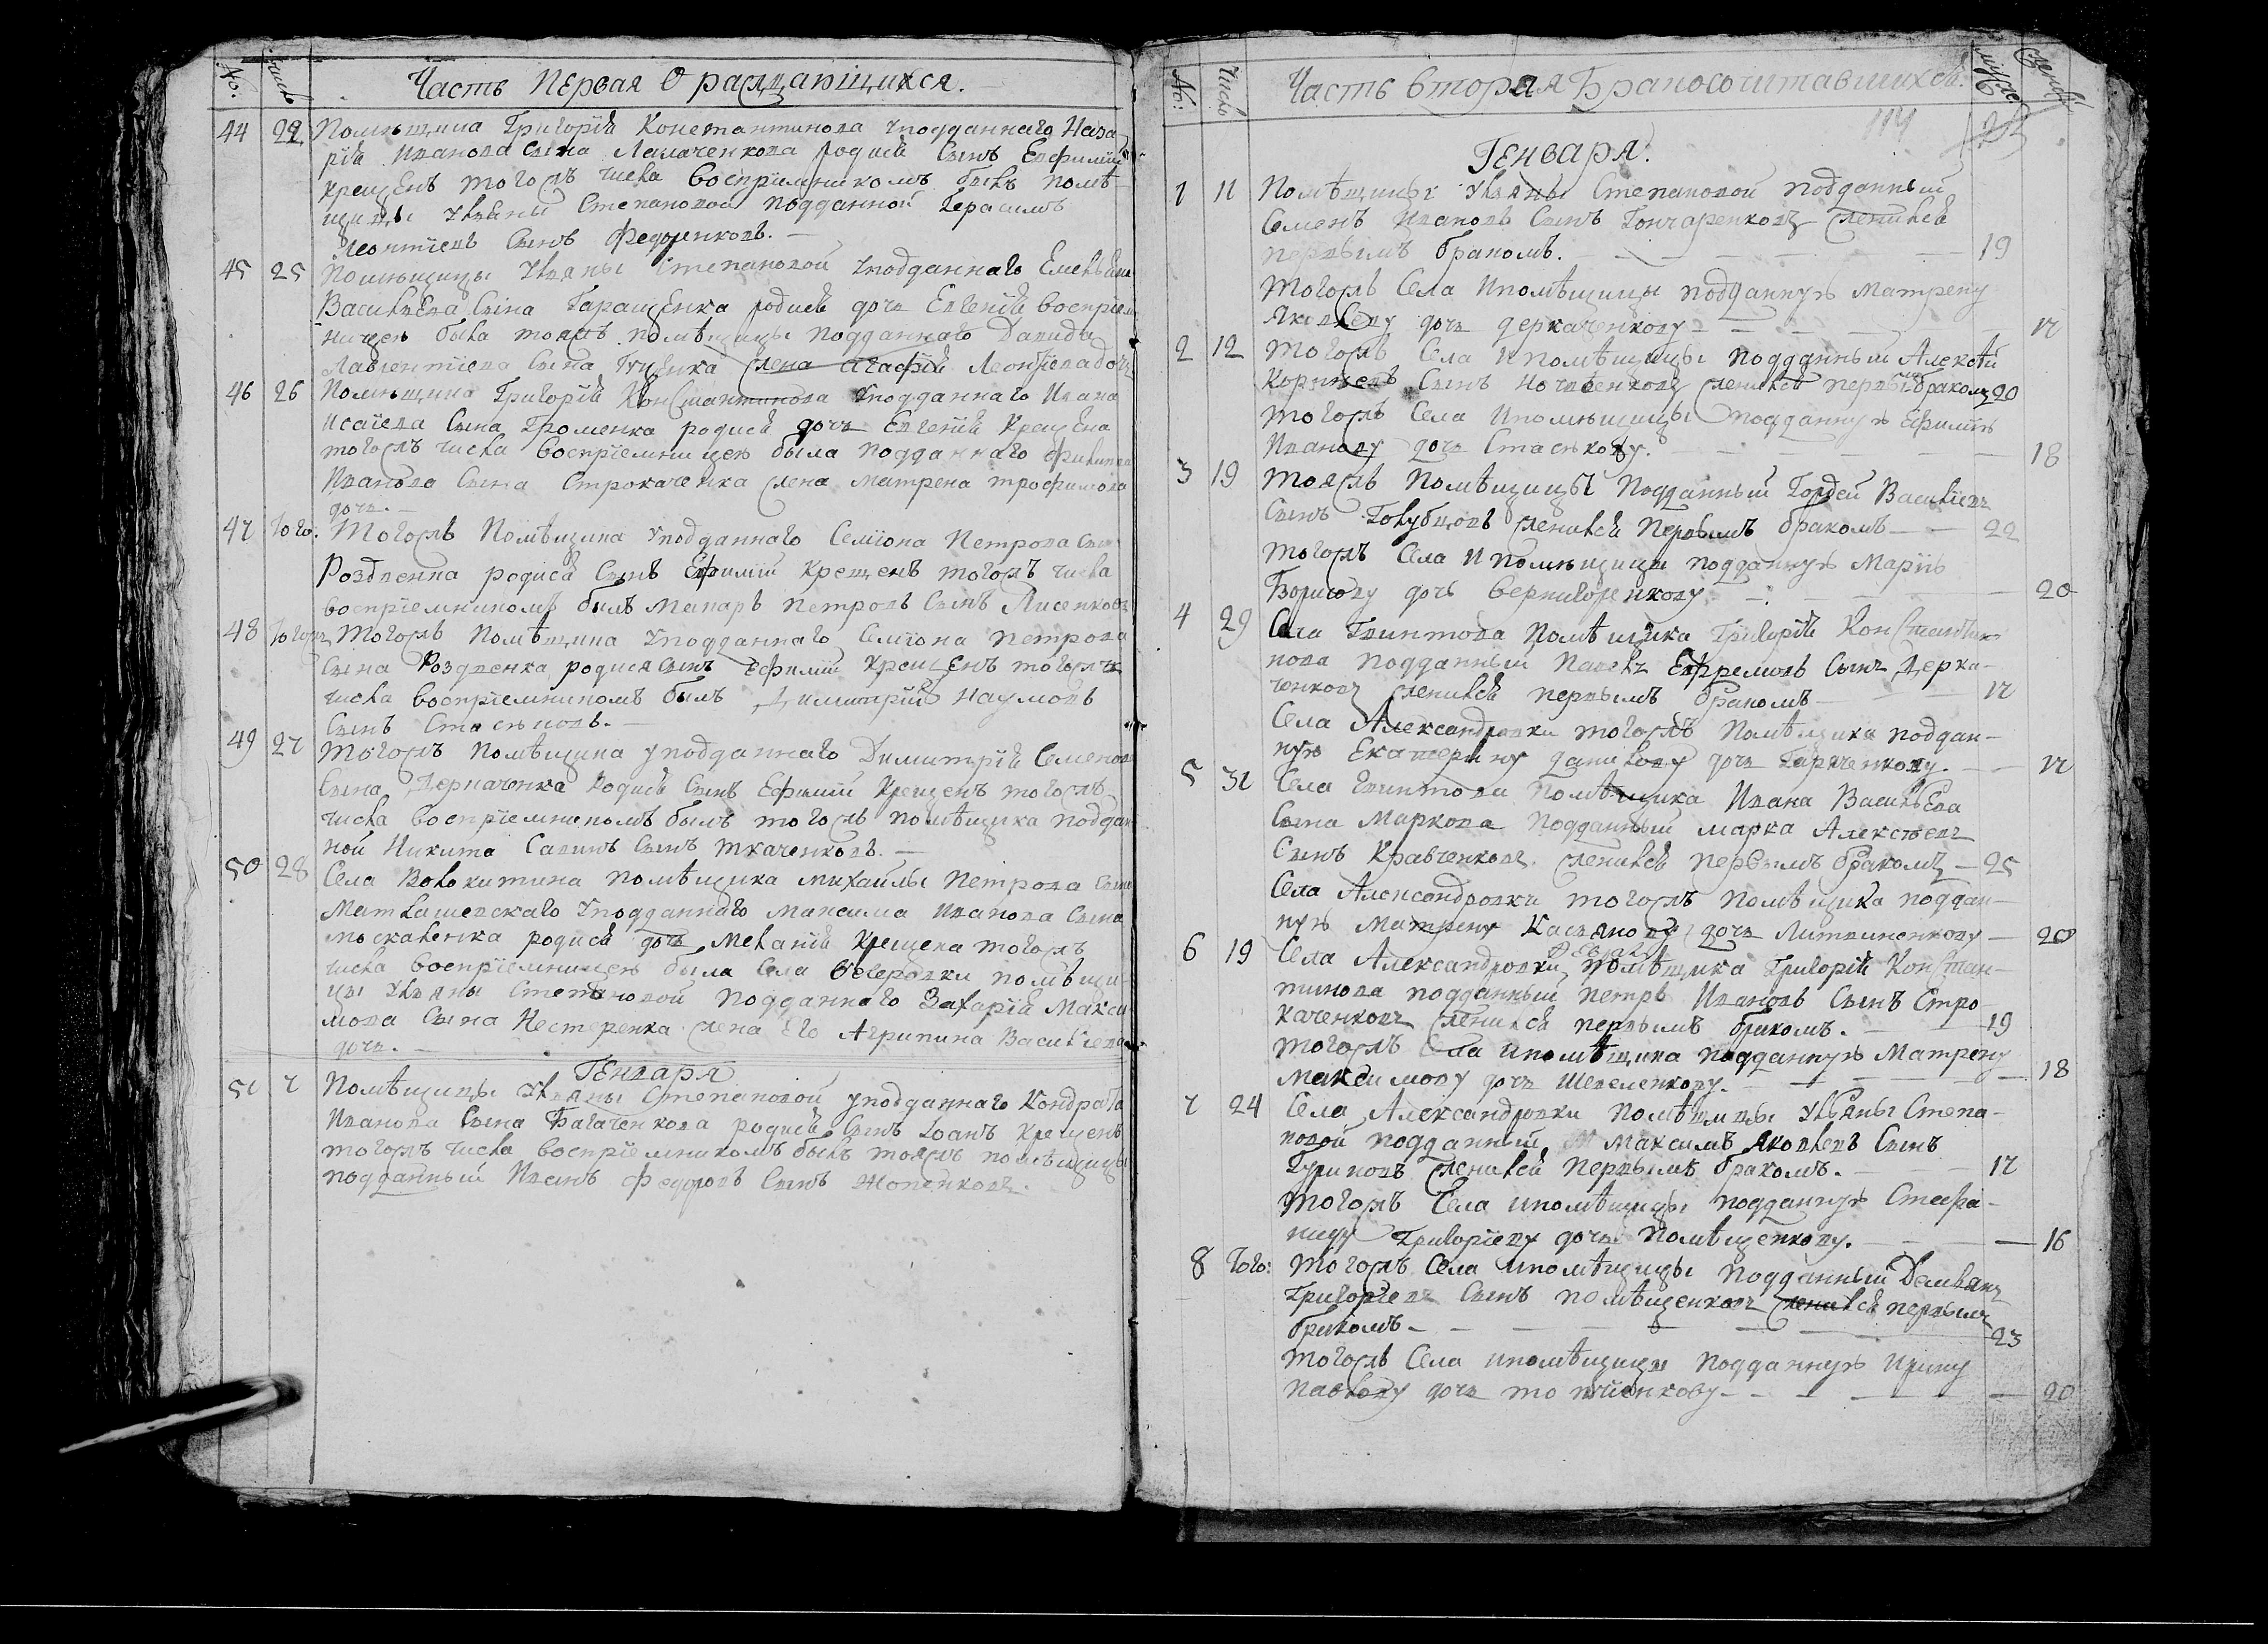 №: число Часть Первая О раждающихся.
44 22 Помѣщика Григорїя Константинова уподданнаго Наза-
рїя Иванова сына Лалаченкова родися сынъ Евфимїй
крещенъ тогожъ числа воспрїемникомъ былъ помѣ-
щицы Ульяны Степановой подданной Герасимъ
Леонтїевъ сынъ Федоренковъ.
45 25 Помѣщицы Ульяны Степановой уподданнаго Емельяна
Васильева сына Гаращенка родися дочь Евгенїя воспрїем
ницею была тояжъ помѣщицы подданнаго Давида
Лаврентїева сына жена Агафїя Леонтїева дочь
46 26 Помѣщика Григорїя Константинова уподданнаго Ивана
Исаїева сына Громенка родися дочь Евгенїя крещена
тогожъ числа воспрїемницею была подданнаго Филипа
Иванова сына Строкаченка жена Матрена Трофимова
дочь.
47 Того: Тогожъ помѣщика уподданнаго Семїона Петрова сына
Роздпенка родися сынъ Ефимїй крещенъ тогожъ числа
воспрїемникомъ былъ Макаръ Петровъ сынъ Лисенковъ
48 Тогожъ Тогожъ помѣщика уподданнаго Семїона Петрова
сына Роздпенка родися сынъ Ефимїй крещенъ тогожъ
числа воспрїемникомъ былъ Димитрїй Наумовъ
сынъ Стасѣновъ.
49 27 Тогожъ помѣщика уподданнаго Димитрїя Семенова
сына Деркаченка родися сынъ Ефимїй крещенъ тогожъ
числа воспрїемникомъ былъ тогожъ помѣщика поддан
ной Никита Савинъ сынъ Ткаченковъ.
50 28 Села Волокитина помѣщика Михаилы Петрова сына
Маткашевскаго уподданнаго Максима Иванова сына
Москаленка родися дочь Меланїя крещена тогожъ
числа воспрїемницею была села помѣщи-
цы Ульяны Степановой подданнаго Захарїя Макси
мова сына Нестеренка жена его Агрипина Василїева
дочь.
Генваря
51 7 Помѣщицы Ульяны Степановой уподданнаго Кондрата
Иванова сына Багаченкова родися сынъ Іоанъ крещенъ
тогожъ числа воспрїемникомъ былъ тояжъ помѣщицы
подданный Иванъ Федоровъ сынъ Жопенковъ.
№: Число Часть вторая Бракосочитавшихся.
114
Генваря:
1 11 Помѣщицы Ульяны Степановой подданный
Семенъ Ивановъ сынъ Гончаренковъ женился
первымъ бракомъ. 19
Тогожъ села ипомѣщицы подданную Матрену
Яковлеву дочь Деркаченкову 17
2 12 Тогожъ села ипомѣщицы подданный Алексѣй
сынъ женился первымъ бракомъ 20
Тогожъ села ипомѣщицы подданную Ефимїю
Иванову дочь Стасѣкову. 18
3 19 Тояжъ помѣщицы подданный Гордей Василїевъ
сынъ Голубцовъ женился первымъ бракомъ 22
Тогожъ села ипомѣщицы подданную Марїю
Борисову дочь Вернигоренкову 20
4 29 Села Гвинтова помѣщика Григорїя Константи-
нова подданный Павелъ Ефремовъ сынъ Дерка-
ченковъ женился первымъ бракомъ 17
Села Александровки тогожъ помѣщика поддан-
ную Екатерину Данилову дочь Гарченкову. 17
5 31 Села Гвинтова помѣщика Ивана Васильева
сына Маркова подданный Марка Алексѣевъ
сынъ Кравченковъ женился первымъ бракомъ 25
Села Александровки тогожъ помѣщика поддан-
ную Матрену Касьянову дочь Литвиненкову 20
Февраля
6 19 Села Александровки помѣщика Григорїя Констан-
тинова подданный Петръ Ивановъ сынъ Стро-
каченковъ женился первымъ бракомъ. 19
Тогожъ села ипомѣщика подданную Матрену
Максимову дочь Шевеленкову. 18
7 24 Села Александровки помѣщицы Ульяны Степа-
новой подданный Максимъ Яковлевъ сынъ
Гуриновъ женился первымъ бракомъ. 17
Тогожъ села ипомѣщицы подданную Стефа-
ниду Григорїеву дочь Помѣщенкову. 16
8 Того: Тогожъ села ипомѣщицы подданный Демьянъ
Григорїевъ сынъ Помѣщенковъ женился первымъ
бракомъ 23
Тогожъ села ипомѣщицы подданную Ирину
Павлову дочь 20